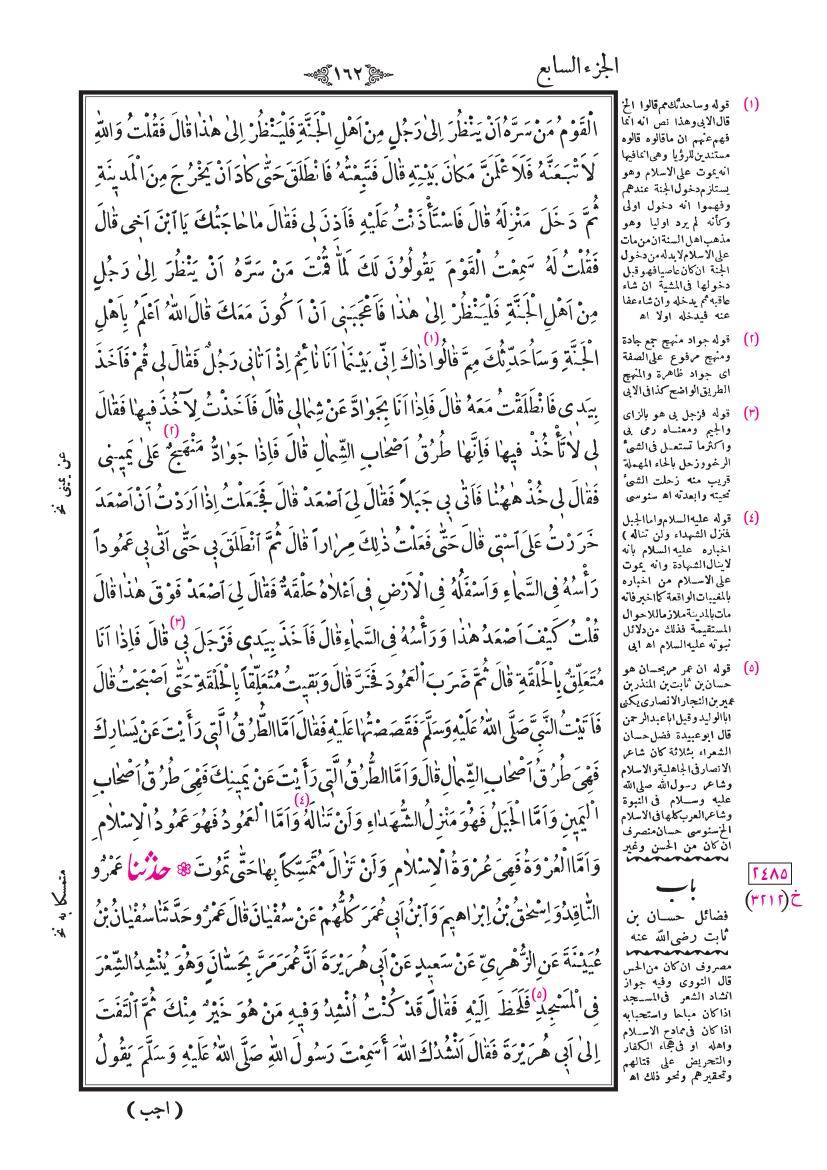 الجزء السابع
١٦٢
الْقَوْمُ مَنْ سَرَّهُ اَنْ يَنْظُرَ اِلىٰ رَجُلٍ مِنْ اَهْلِ الْجَنَّةِ فَلْيَنْظُرْ اِلىٰ هٰذَا قَالَ فَقُلْتُ وَاللّٰهِ
لَاَتْبَعَنَّهُ فَلَاَعْلَمَنَّ مَكَانَ بَيْتِهِ قَالَ فَتَبِعْتُهُ فَانْطَلَقَ حَتّٰى كَادَ اَنْ يَخْرُجَ مِنَ الْمَدِينَةِ
ثُمَّ دَخَلَ مَنْزِلَهُ قَالَ فَاسْتَأْذَنْتُ عَلَيْهِ فَاَذِنَ لِي فَقَالَ مَا حَاجَتُكَ يَا ابْنَ اَخِي قَالَ
فَقُلْتُ لَهُ سَمِعْتُ الْقَوْمَ يَقُولُونَ لَكَ لَمَّا قُمْتَ مَنْ سَرَّهُ اَنْ يَنْظُرَ اِلىٰ رَجُلٍ
مِنْ اَهْلِ الْجَنَّةِ فَلْيَنْظُرْ اِلىٰ هٰذَا فَاَعْجَبَنِي اَنْ اَكُونَ مَعَكَ قَالَ اللّٰهُ اَعْلَمُ بِاَهْلِ
الْجَنَّةِ وَسَاُحَدِّثُكَ مِمَّ قَالُوا (١) ذَاكَ اِنِّي بَيْنَمَا اَنَا نَائِمٌ اِذْ اَتَانِي رَجُلٌ فَقَالَ لِي قُمْ فَاَخَذَ
بِيَدِي فَانْطَلَقْتُ مَعَهُ قَالَ فَاِذَا اَنَا بِجَوَادَّ عَنْ شِمَالِي قَالَ فَاَخَذْتُ لِآخُذَ فِيهَا فَقَالَ
لِي لَا تَأْخُذْ فِيهَا فَاِنَّهَا طُرُقُ اَصْحَابِ الشِّمَالِ قَالَ فَاِذَا جَوَادُّ (٢) مَنْهَجٌ عَلىٰ يَمِينِي
فَقَالَ لِي خُذْ هٰهُنَا فَاَتٰى بِي جَبَلاً فَقَالَ لِيَ اصْعَدْ قَالَ فَجَعَلْتُ اِذَا اَرَدْتُ اَنْ اَصْعَدَ
خَرَرْتُ عَلَى اسْتِي قَالَ حَتّٰى فَعَلْتُ ذٰلِكَ مِرَاراً قَالَ ثُمَّ انْطَلَقَ بِي حَتّٰى اَتٰى بِي عَمُوداً
رَأْسُهُ فِي السَّمَاءِ وَاَسْفَلُهُ فِي الْاَرْضِ فِي اَعْلَاهُ حَلْقَةٌ فَقَالَ لِيَ اصْعَدْ فَوْقَ هٰذَا قَالَ
قُلْتُ كَيْفَ اَصْعَدُ هٰذَا وَرَأْسُهُ فِي السَّمَاءِ قَالَ فَاَخَذَ بِيَدِي فَزَجَلَ بِي (٣) قَالَ فَاِذَا اَنَا
مُتَعَلِّقٌ بِالْحَلْقَةِ قَالَ ثُمَّ ضَرَبَ الْعَمُودَ فَخَرَّ قَالَ وَبَقِيتُ مُتَعَلِّقاً بِالْحَلْقَةِ حَتّٰى اَصْبَحْتُ قَالَ
فَاَتَيْتُ النَّبِيَّ صَلَّى اللّٰهُ عَلَيْهِ وَسَلَّمَ فَقَصَصْتُهَا عَلَيْهِ فَقَالَ اَمَّا الطُّرُقُ الَّتِي رَأَيْتَ عَنْ يَسَارِكَ
فَهِيَ طُرُقُ اَصْحَابِ الشِّمَالِ قَالَ وَاَمَّا الطُّرُقُ الَّتِي رَأَيْتَ عَنْ يَمِينِكَ فَهِيَ طُرُقُ اَصْحَابِ
الْيَمِينِ وَاَمَّا الْجَبَلُ فَهُوَ مَنْزِلُ الشُّهَدَاءِ وَلَنْ تَنَالَهُ (٤) وَاَمَّا الْعَمُودُ فَهُوَ عَمُودُ الْاِسْلَامِ
وَاَمَّا الْعُرْوَةُ فَهِيَ عُرْوَةُ الْاِسْلَامِ وَلَنْ تَزَالَ مُتَمَسِّكاً بِهَا حَتّٰى تَمُوتَ ❁ حدثنا عَمْرٌو
النَّاقِدُ وَاِسْحٰقُ بْنُ اِبْرَاهِيمَ وَابْنُ اَبِي عُمَرَ كُلُّهُمْ عَنْ سُفْيَانَ قَالَ عَمْرٌو حَدَّثَنَا سُفْيَانُ بْنُ
عُيَيْنَةَ عَنِ الزُّهْرِيِّ عَنْ سَعِيدٍ عَنْ اَبِي هُرَيْرَةَ اَنَّ عُمَرَ مَرَّ بِحَسَّانٍ وَهُوَ يُنْشِدُ الشِّعْرَ
فِي الْمَسْجِدِ (٥) فَلَحَظَ اِلَيْهِ فَقَالَ قَدْ كُنْتُ اُنْشِدُ وَفِيهِ مَنْ هُوَ خَيْرٌ مِنْكَ ثُمَّ الْتَفَتَ
اِلىٰ اَبِي هُرَيْرَةَ فَقَالَ اَنْشُدُكَ اللّٰهَ اَسَمِعْتَ رَسُولَ اللّٰهِ صَلَّى اللّٰهُ عَلَيْهِ وَسَلَّمَ يَقُولُ
( اجب )
(١) قوله وساحدثك مم قالوا الخ
قال الابى وهذا نص انه انما
فهم عنهم ان ما قالوه قالوه
مستندين للرؤيا وهى انما فيها
انه يموت على الاسلام وهو
يستلزم دخول الجنة عندهم
وفهموا انه دخول اولى
وكأنه لم يرد اوليا وهو
مذهب اهل السنة ان من مات
على الاسلام لا بد له من دخول
الجنة ان كان عاصيا فهو قبل
دخولها فى المشية ان شاء
عاقبه ثم يدخله وان شاء عفا
عنه فيدخله اولا اه
(٢) قوله جواد منهج جمع جادة
ومنهج مرفوع على الصفة
اى جواد ظاهرة والمنهج
الطريق الواضح كذا فى الابى
(٣) قوله فزجل بى هو بالزاى
والجيم ومعناه رمى بى
واكثر ما تستعمل فى الشئ
الرخو وزحل بالحاء المهملة
قريب منه زحلت الشئ
نحيته وابعدته اه سنوسى
(٤) قوله عليه السلام واما الجبل
فمنزل الشهداء ولن تناله )
اخباره عليه السلام بانه
لا ينال الشهادة وانه يموت
على الاسلام من اخباره
بالمغيبات الواقعة كما اخبر فانه
مات بالمدينة ملازما للاحوال
المستقيمة فذلك من دلائل
نبوته عليه السلام اه ابى
(٥) قوله ان عمر مر بحسان هو
حسان بن ثابت بن المنذر بن
عمير بن النجار الانصارى يكنى
ابا الوليد وقيل ابا عبد الرحمن
قال ابو عبيدة فضل حسان
الشعراء بثلاثة كان شاعر
الانصار فى الجاهلية والاسلام
وشاعر رسول الله صلى الله
عليه وسلام فى النبوة
وشاعر العرب كلها فى الاسلام
الخ سنوسى حسان منصرف
ان كان من الحسن وغير
٢٤٨٥
خ (٣٢١٢)
باب
فضائل حسان بن
ثابت رضى الله عنه
مصروف ان كان من الحس
قال النووى وفيه جواز
انشاد الشعر فى المسجد
اذا كان مباحا واستحبابه
اذا كان فى ممادح الاسلام
واهله او فى هجاء الكفار
والتحريض على قتالهم
وتحقيرهم ونحو ذلك اه
عن يمينى نخ
متمسكا به نخ